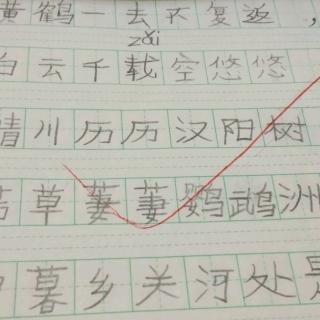 黄鹤一去不复返，
zǎi
白云千载空悠悠
晴川历历汉阳树
芳草萋萋鹦鹉洲
暮乡关河处是